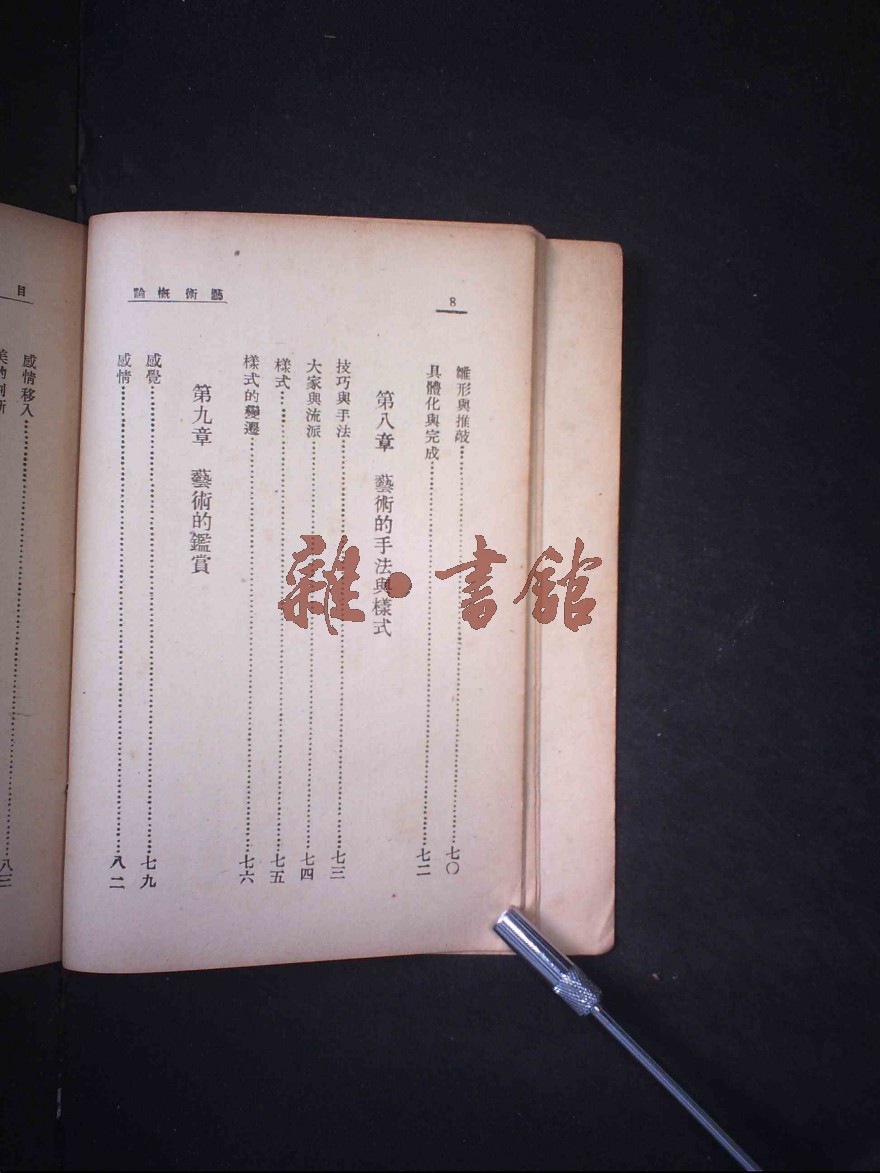 論概術藝
8
雛形與推敲⋯⋯⋯⋯⋯⋯七〇
具體化與完成⋯⋯⋯⋯⋯⋯七二
第八章　藝術的手法與樣式
技巧與手法⋯⋯⋯⋯⋯⋯七三
大家與流派⋯⋯⋯⋯⋯⋯七四
樣式⋯⋯⋯⋯⋯⋯七五
樣式的變遷⋯⋯⋯⋯⋯⋯七六
第九章　藝術的鑑賞
感覺⋯⋯⋯⋯⋯⋯七九
感情⋯⋯⋯⋯⋯⋯八二
目
感情移入⋯⋯⋯⋯⋯⋯八三
雜·書館